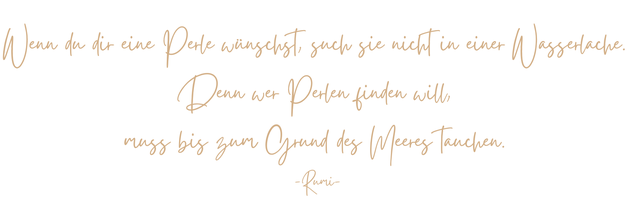 Wenn du dir eine Perle wünschst, such sie nicht in einer Wasserlache.
Denn wer Perlen finden will,
muss bis zum Grund des Meeres tauchen.
-Rumi-